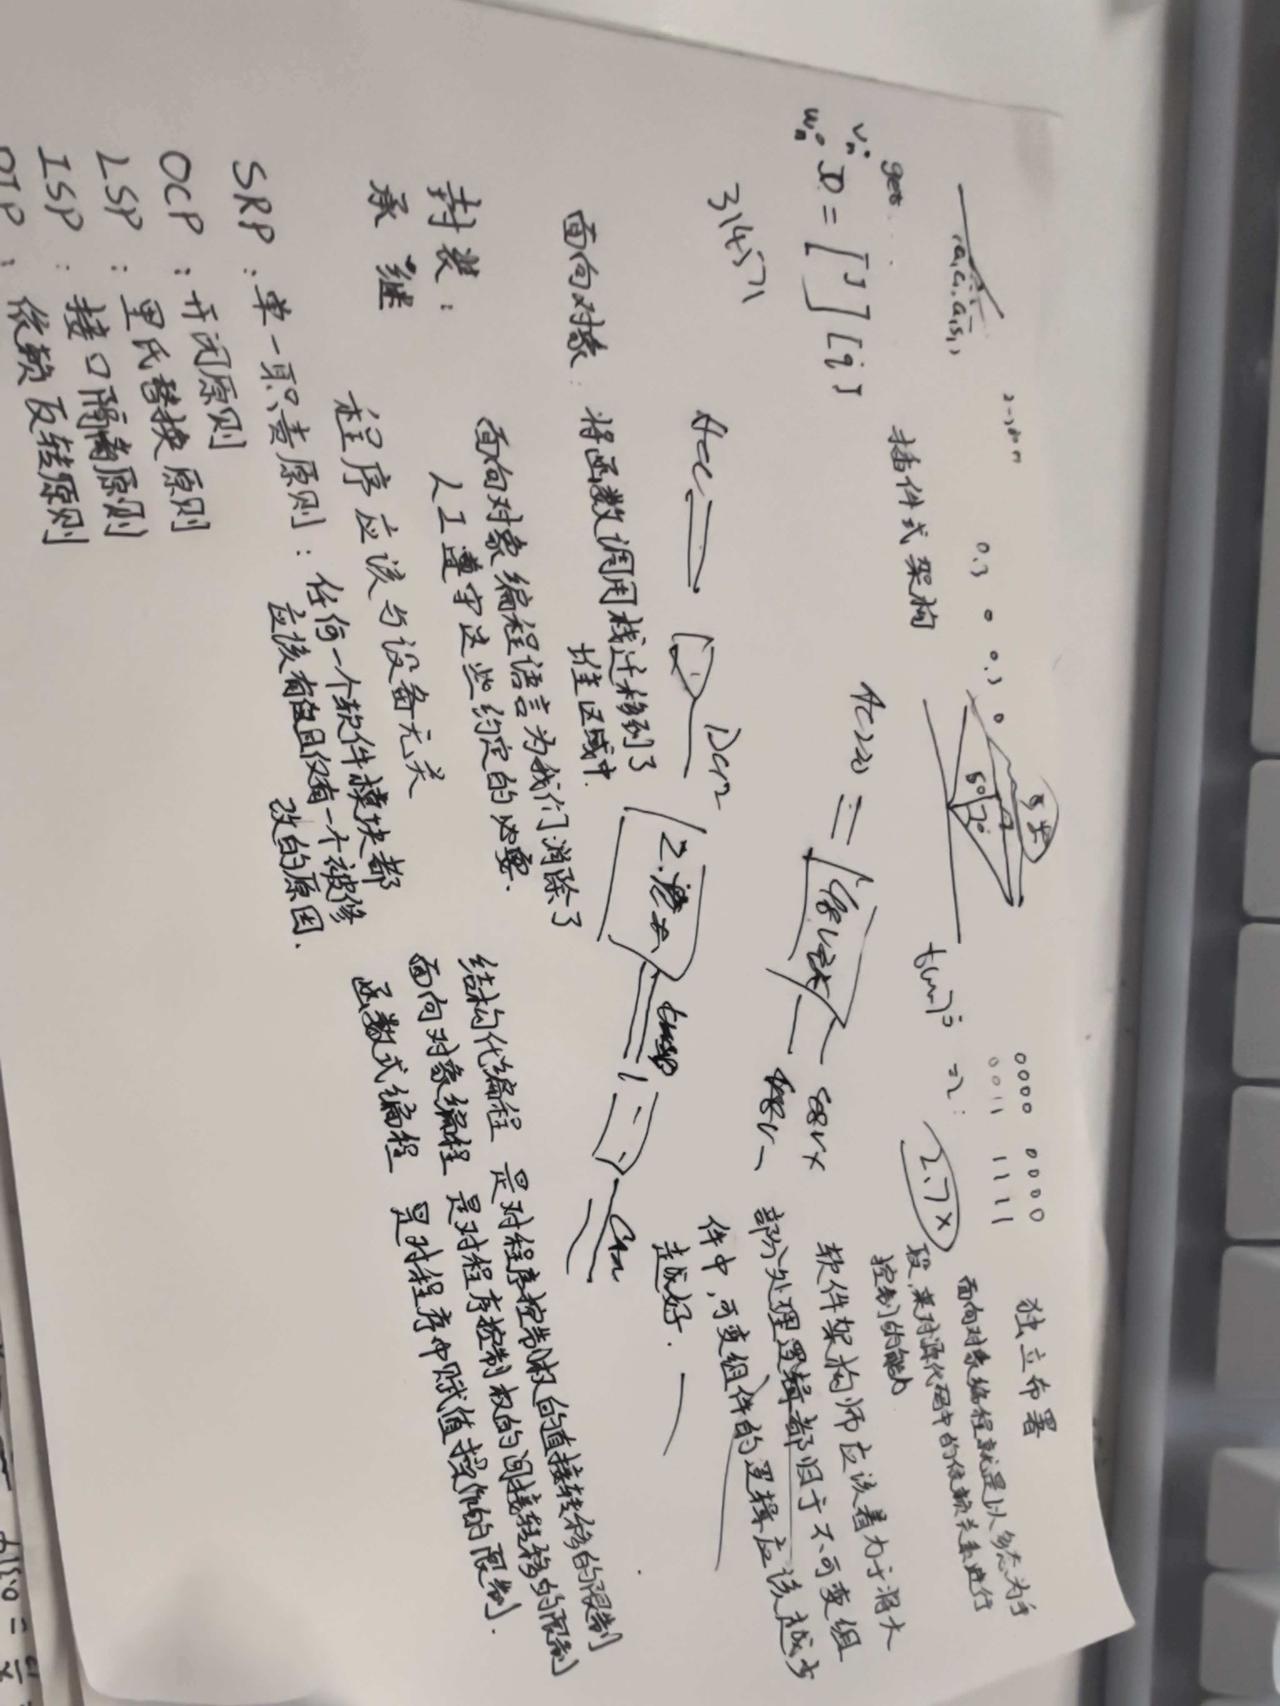 独立布署
面向对象编程就是以多态为手
段,来对源代码中的依赖关系进行
控制的能力
0000 0000
0011 1111
2.7x
0.3 0 0.3 0
插件式架构
get
D = [ ] [i]
314571
软件架构师应该着力于将大
部分处理逻辑都归于不可变组
件中,可变组件的逻辑应该越少
越好.
面向对象: 将函数调用栈迁移到了
堆区域中.
面向对象编程语言为我们消除了
人工遵守这些约定的必要.
封装:
承继
程序应该与设备无关
结构化编程 是对程序控制权的直接转移的限制
面向对象编程 是对程序控制权的间接转移的限制
函数式编程 是对程序中赋值操作的限制.
SRP: 单一职责原则: 任何一个软件模块都
应该有且仅有一个被修
改的原因.
OCP: 开闭原则
LSP: 里氏替换原则
ISP: 接口隔离原则
DIP: 依赖反转原则